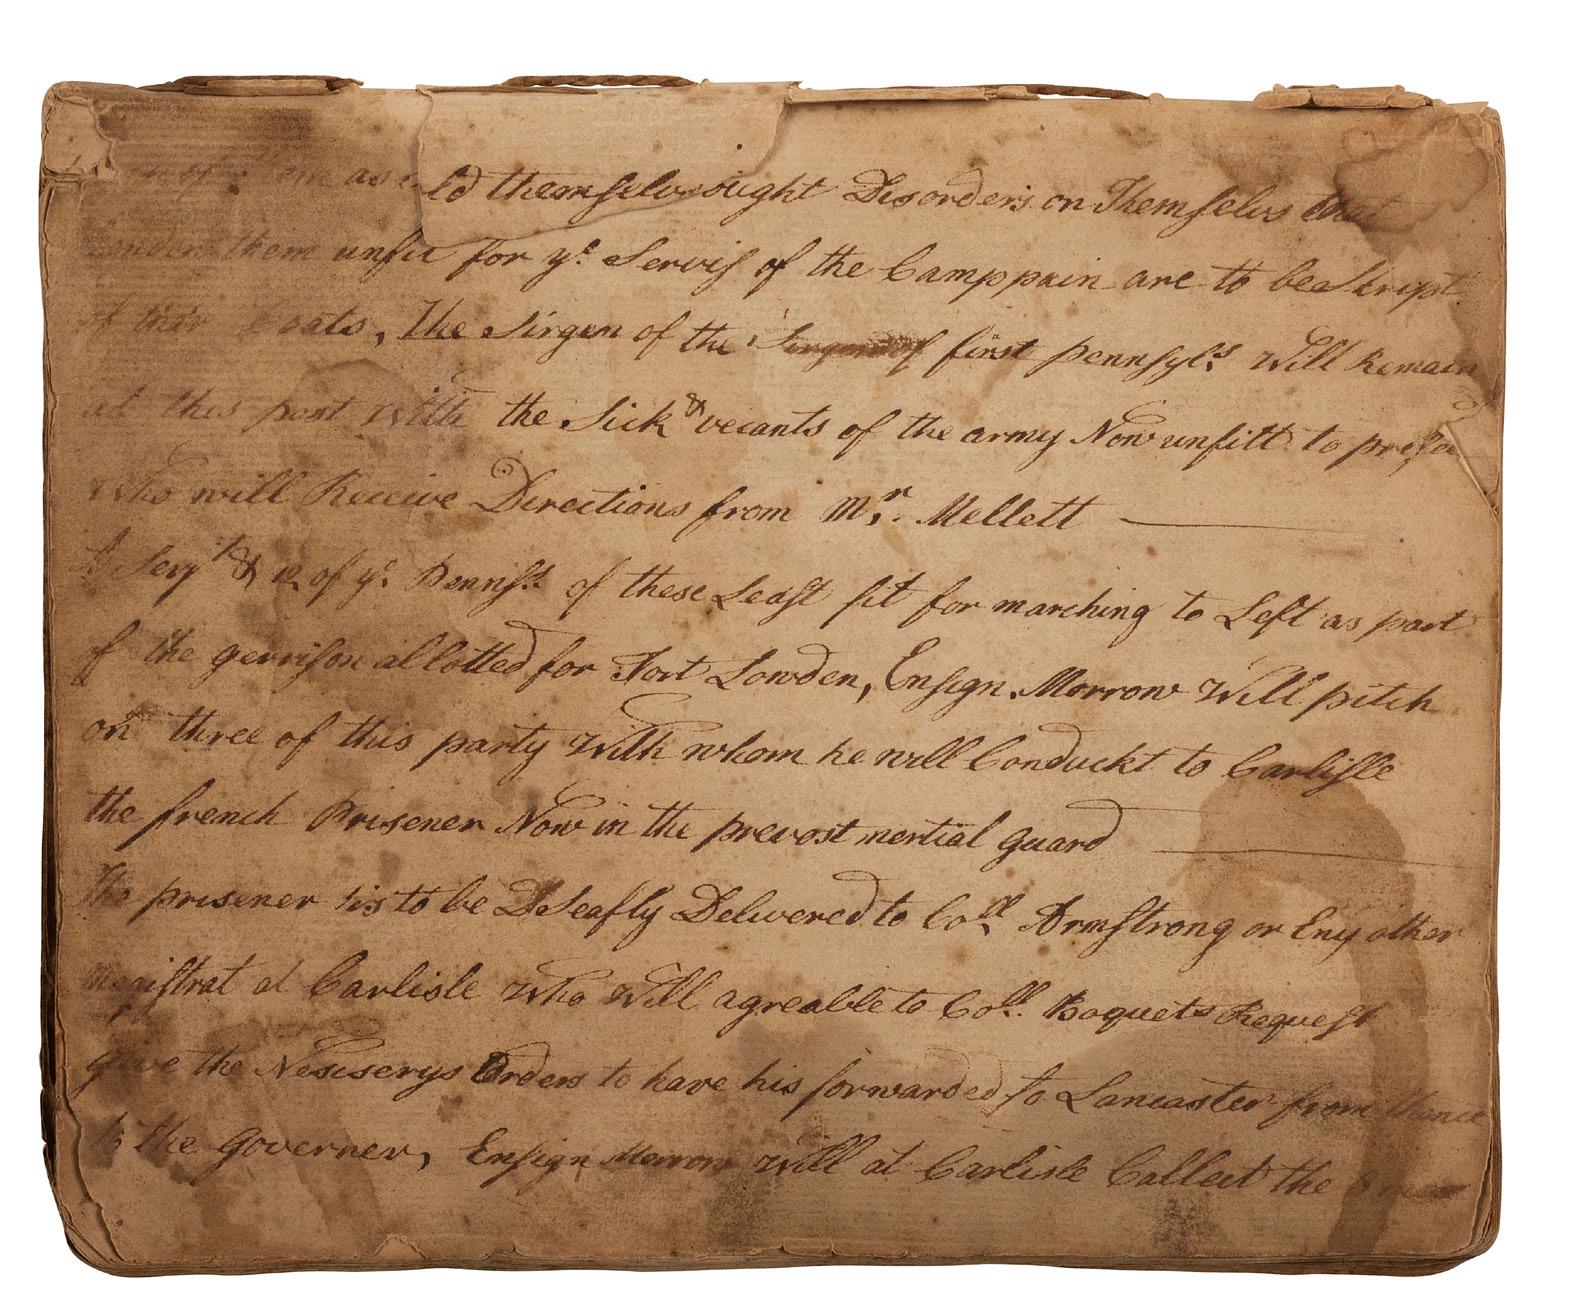 as ld themselves ought Disorders on Themselvs that
them unfit for ye Servis of the Camppain are to be Stript
of thir Coats, The Sirgen of the Sirgen of first pennsyls. Will Remain
at this post with the Sick & vecants of the army Now unfitt to
Who will Receive Directions from Mr. Mellett
A Serjt & 12 of ye Pennss. of these Least fit for marching to Left as part
of the gerrison allotted for Fort Lowden, Ensign Morrow Will pitch
on three of this party With whom he will Conduckt to Carlisle
the french Prisener Now in the prevost mertial guard
The prisener is to be Seafly Delivered to Coll. Armstrong or Eny other
magistrat at Carlisle Who Will agreable to Coll. Boquets Request
give the Nesiserys Orders to have his forwarded to Lancaster from thence
to the Governer, Ensign Morrow Will at Carlisle Callect the